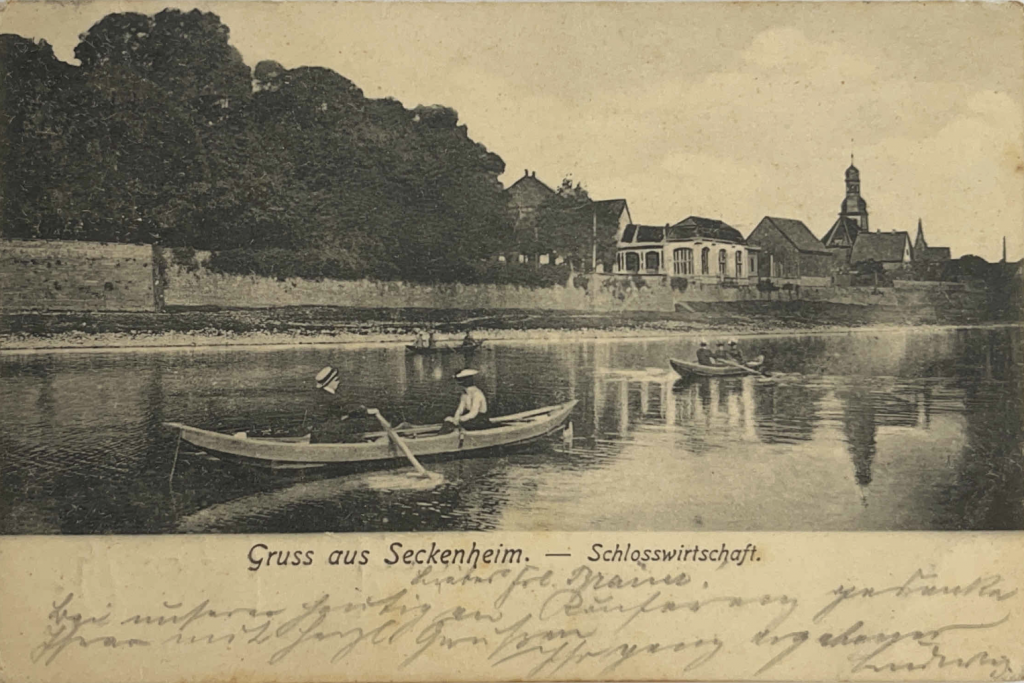 Gruss aus Seckenheim. — Schlosswirtschaft.
Liebes Frl. Braun.
Bei unserer heutigen Konferenz gedenke
Ihrer mit herzl Grüßen
Ihr ganz ergebener
Ludwig